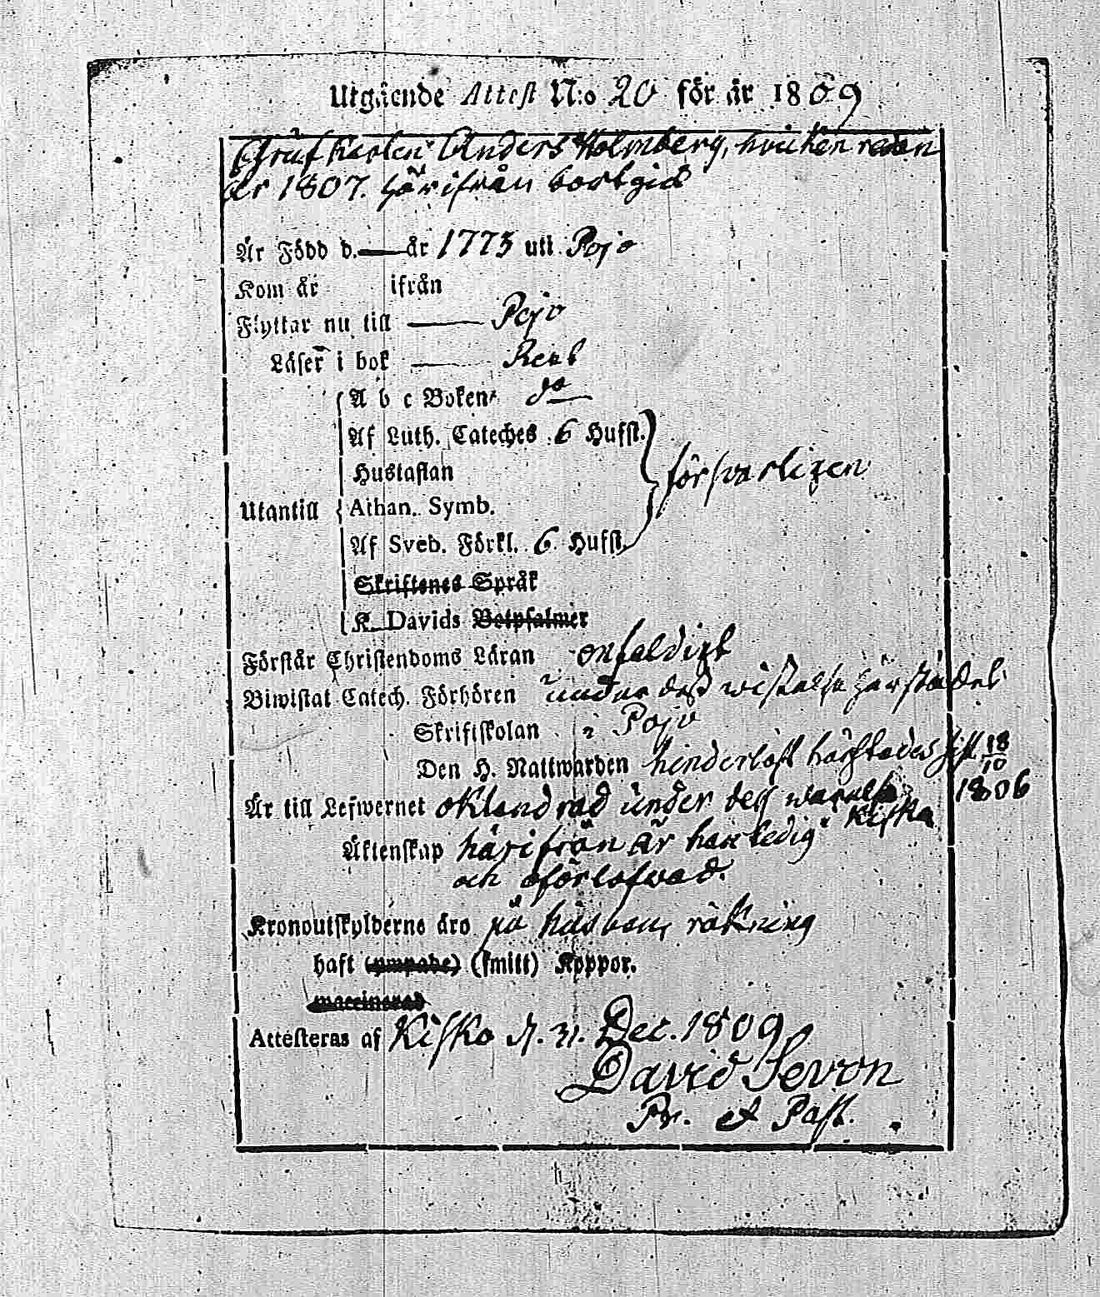 Utgående Attest N:o 20 för år 1809
Grufkarlen Anders Holmberg, hvilken redan
år 1807. härifrån bortgick
Är Född d. — år 1775 uti Pojo
Kom år ifrån
Flyttar nu till — Pojo
Läser i bok — Rent
A b c Boken do
Af Luth. Cateches 6 Hufst.
Hustaflan
försvarligen
Utantill
Athan. Symb.
Af Sveb. Förkl. 6 Hufst.
Skriftenes Språk
K. Davids Botpsalmer
Förstår Christendoms Läran enfaldigt
Biwistat Catech. Förhören under dess wistelse härstädes
Skriftskolan i Pojo
Den H. Nattwarden hinderlöst härstädes sist 18/10
1806
Är till Lefwernet oklandrad under dess
Kisko
Äktenskap härifrån är han ledig
och oförlofwad.
Kronoutskylderne äro på husbond. räkning
haft (smitt) Koppor.
Attesteras af Kisko d. 31. Dec. 1809
David Sevon
Pr. et Past.